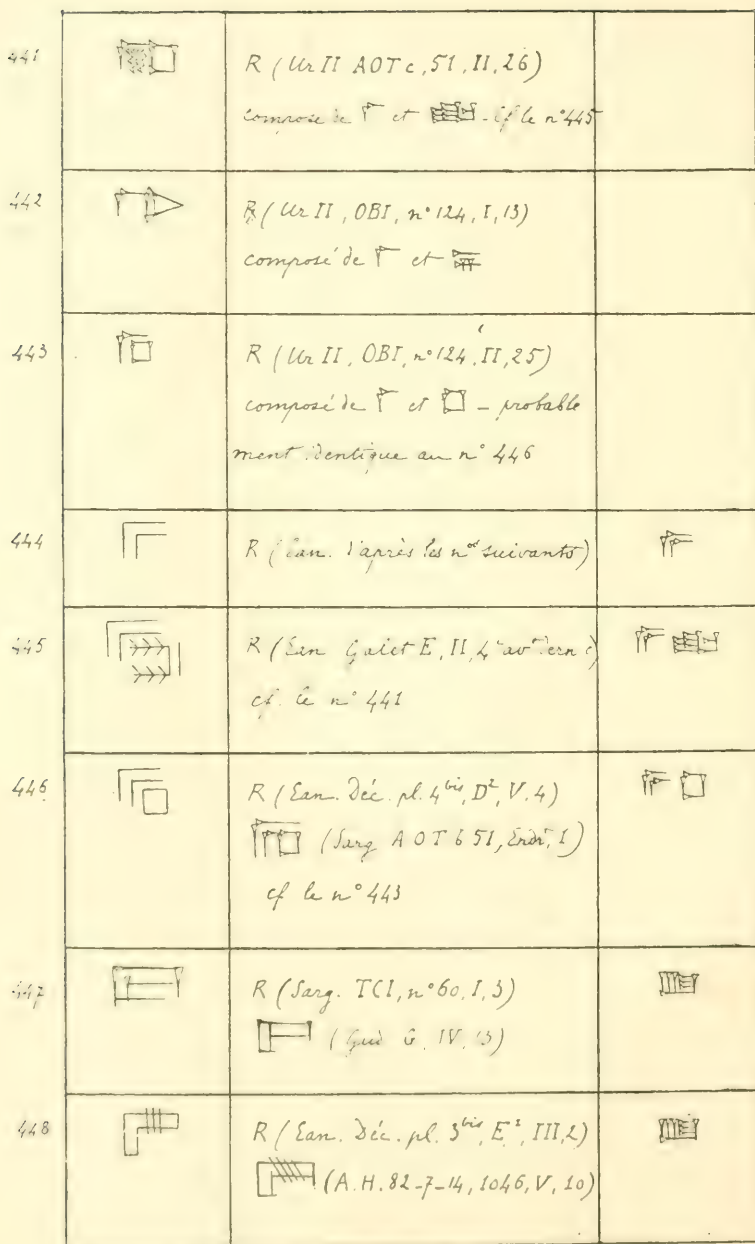 441
R (Ur II AOTc, 51, II, 26)
composé de et - cf le n° 445
442
R (Ur II, OBI, n° 124, I, 13)
composé de et
443
R (Ur II, OBI, n° 124, II, 25)
composé de et - probable
ment identique au n° 446
444
R (Ean. d'après les nos suivants)
445
R (Ean Galet E, II, 4e avt dern c)
cf. le n° 441
446
R (Ean. Déc. pl. 4bis, D2, V. 4)
(Sarg AOT b 51, Endr, 1)
cf le n° 443
447
R (Sarg. TCI, n° 60, I, 3)
(Gud G, IV, 13)
448
R (Ean. Déc. pl. 3bis, E2, III, 2)
(A.H. 82-7-14, 1046, V, 10)